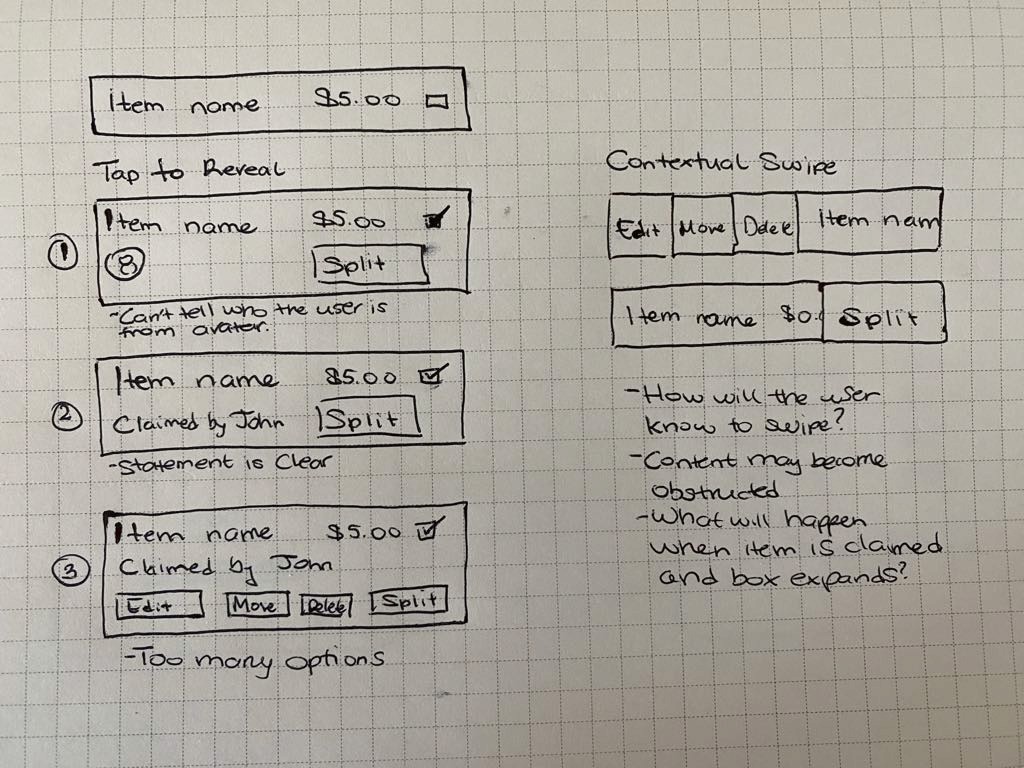 Item name $5.00
Tap to Reveal
① Item name $5.00
Split
-Can't tell who the user is
from avatar.
② Item name $5.00
Claimed by John Split
-Statement is Clear
③ Item name $5.00
Claimed by John
Edit Move Delete Split
-Too many options
Contextual Swipe
Edit Move Delete Item nam
Item name $0. Split
-How will the user
know to swipe?
-Content may become
obstructed
-What will happen
when item is claimed
and box expands?